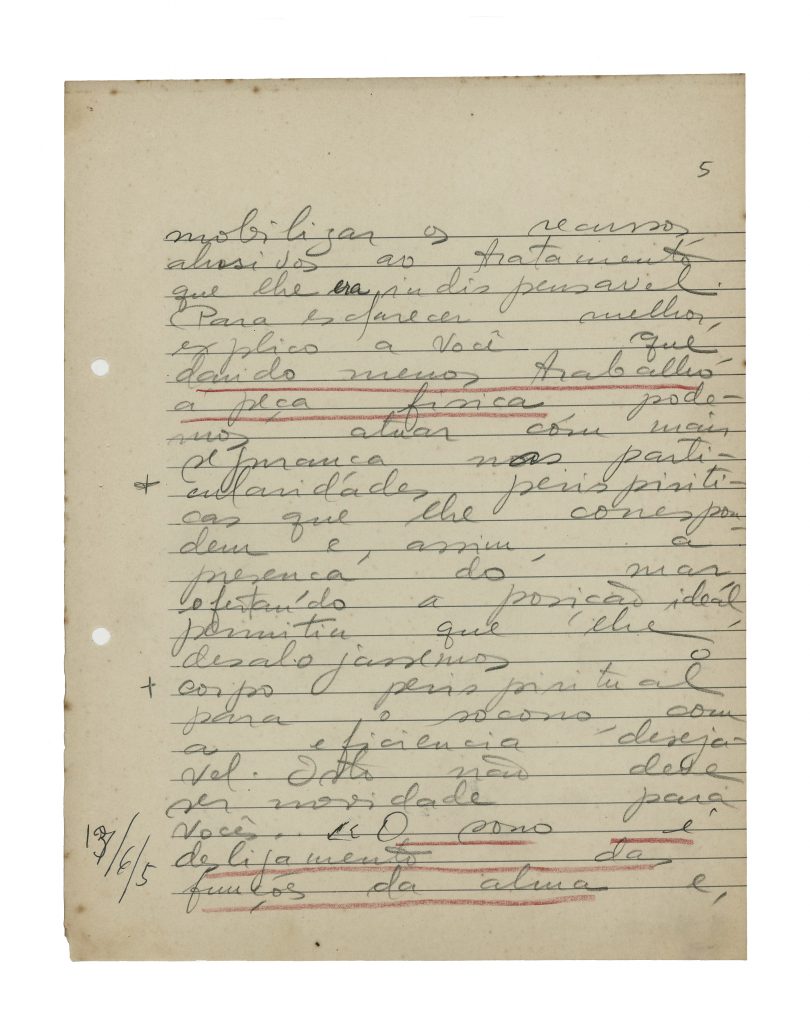 5
mobilizar os recursos
alusivos ao tratamento
que lhe era indispensavel.
Para esclarecer melhor,
explico a você que,
dando menos trabalho
á peça fisica pode-
mos atuar com mais
segurança nas parti-
+ cularidades perispiriti-
cas que lhe correspon-
dem e, assim, a
presença do mar,
ofertando a posição ideál,
permitiu que lhe
desalojassemos o
+ corpo perispiritual
para o socorro com
a eficiencia deseja-
vel. Isto não deve
ser novidade para
vocês. «O sono é
desligamento da
funções da alma e,
13/6/5